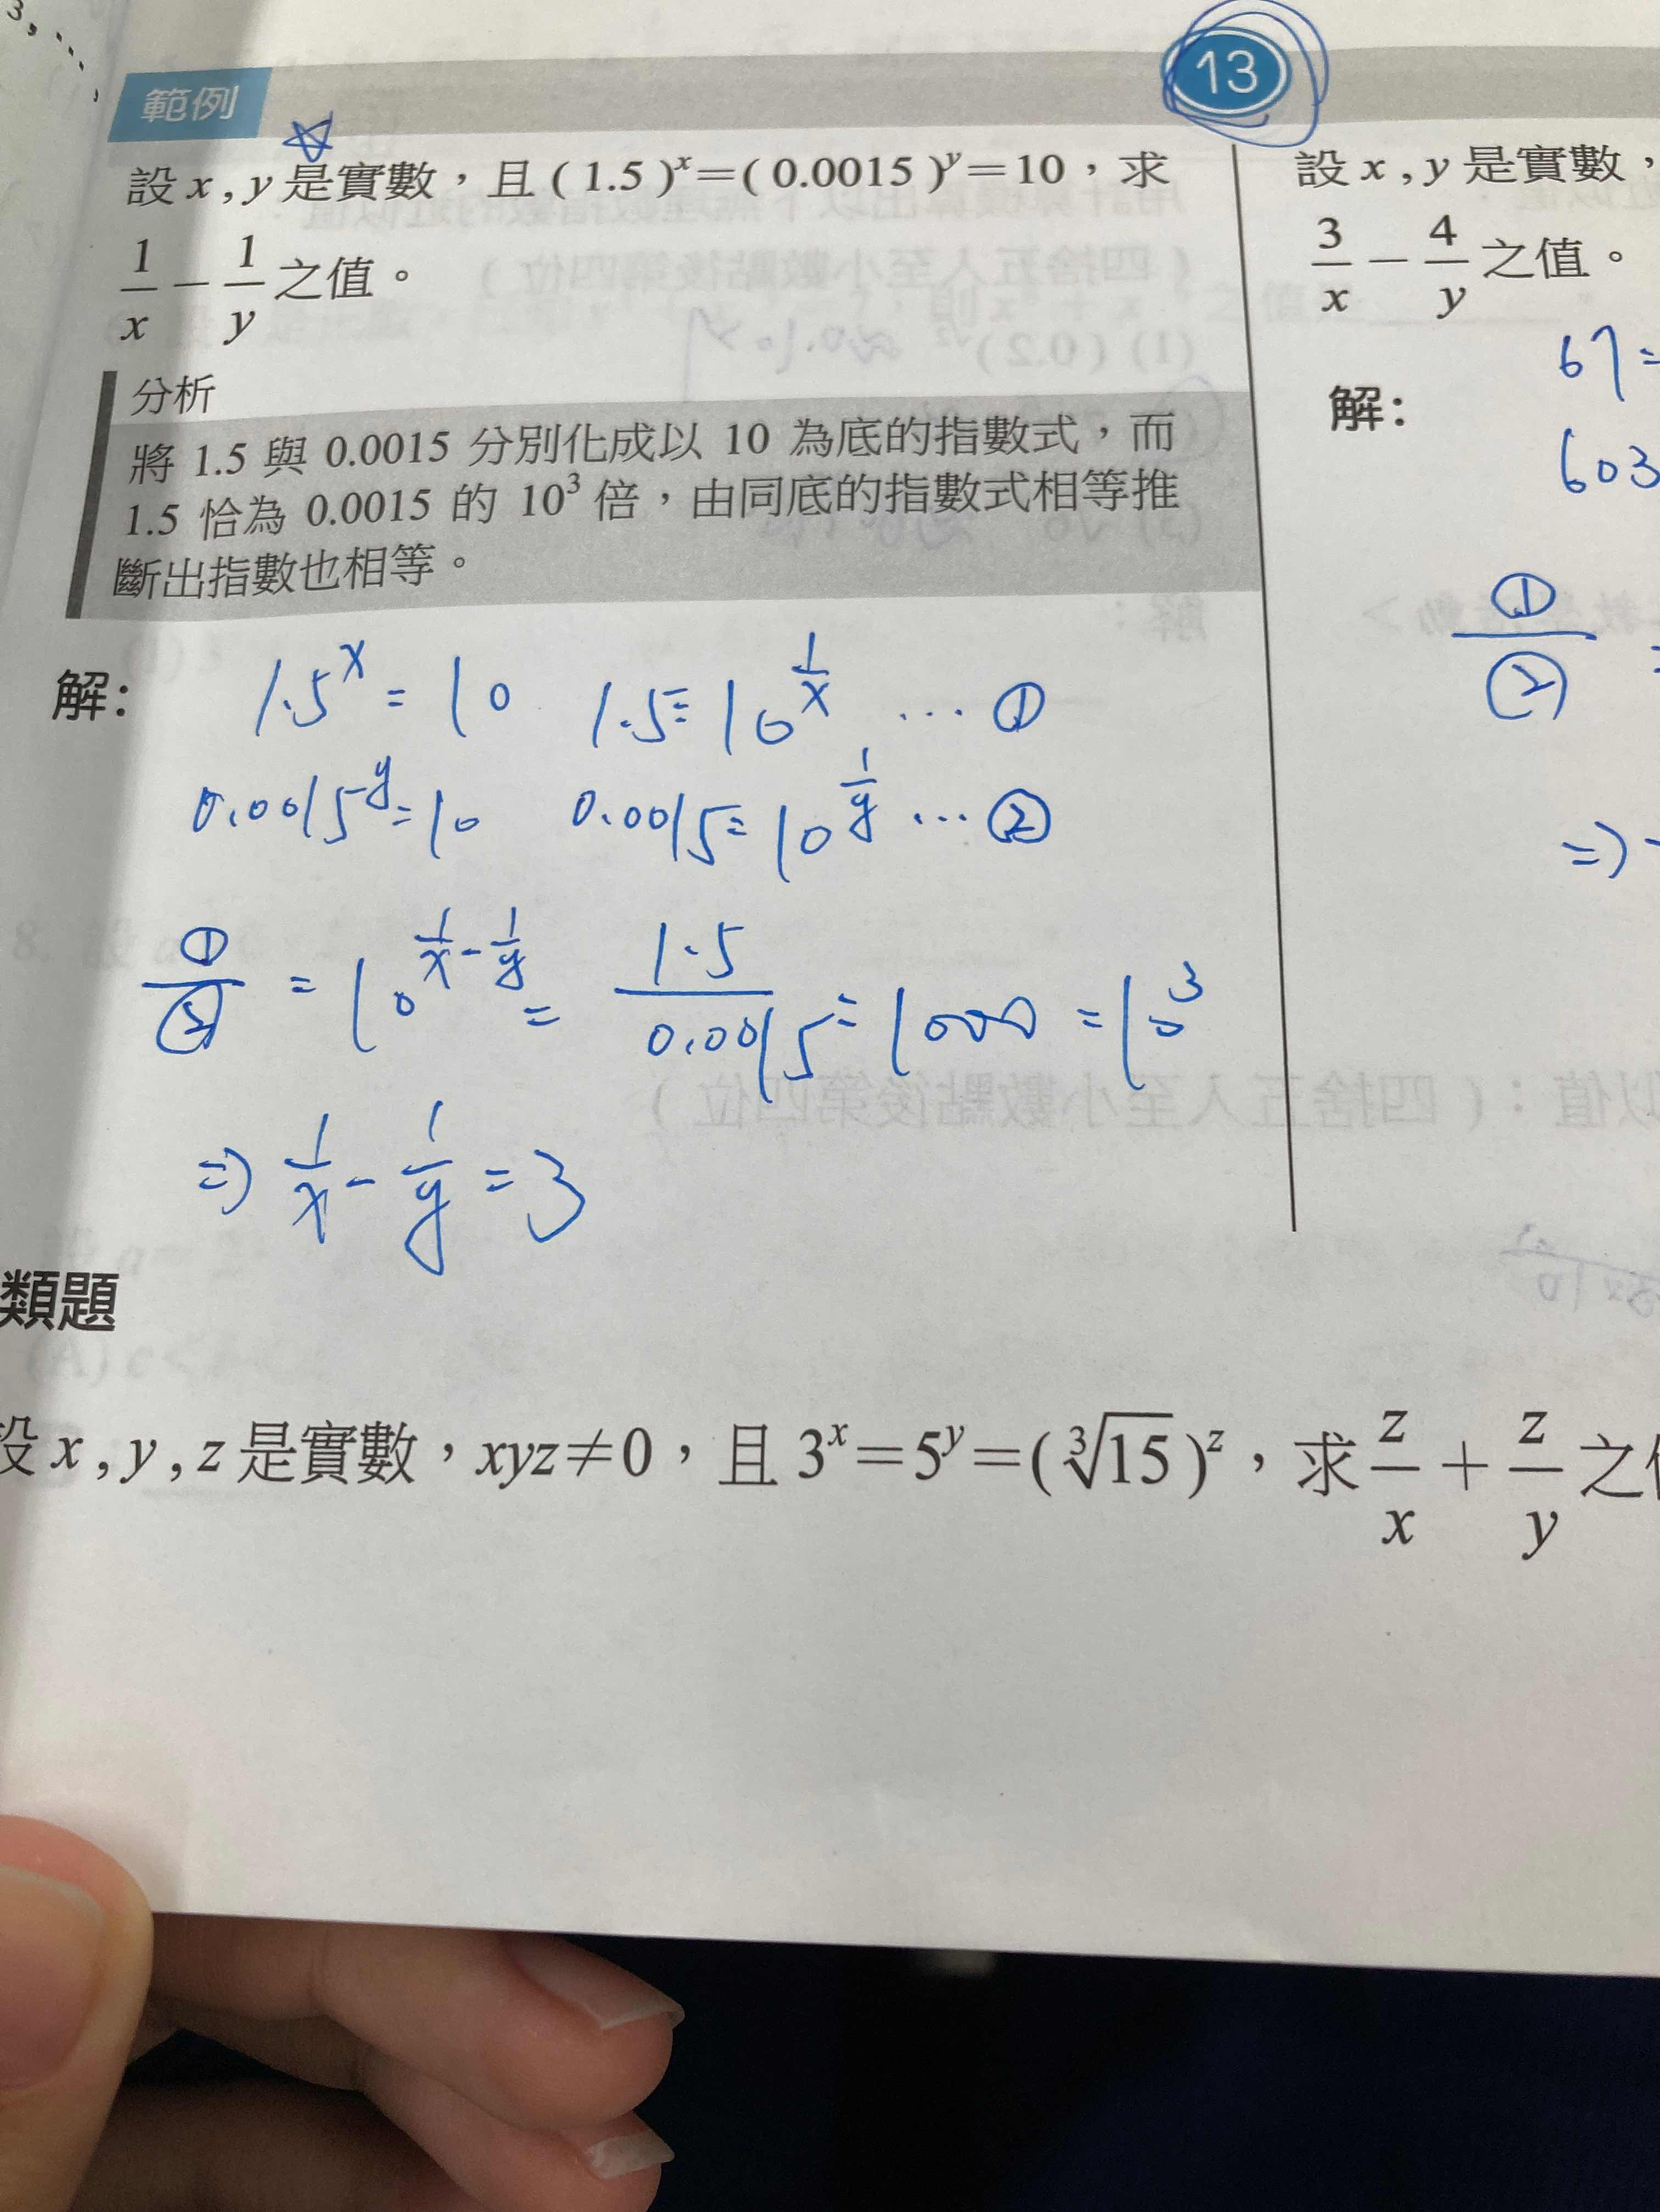 13
範例
設 x , y 是實數，且 ( 1.5 )^x＝( 0.0015 )^y＝10，求
1/x － 1/y 之值。
分析
將 1.5 與 0.0015 分別化成以 10 為底的指數式，而
1.5 恰為 0.0015 的 10^3 倍，由同底的指數式相等推
斷出指數也相等。
解：
1.5^x = 10 1.5 = 10^(1/x) … ①
0.0015^y = 10 0.0015 = 10^(1/y) … ②
①/② = 10^(1/x - 1/y) = 1.5/0.0015 = 1000 = 10^3
=> 1/x - 1/y = 3
設 x , y 是實數，
3/x － 4/y 之值。
解：
67 =
603
①/②
=>
類題
設 x , y , z 是實數，xyz≠0，且 3^x＝5^y＝( ∛15 )^z，求 z/x ＋ z/y 之